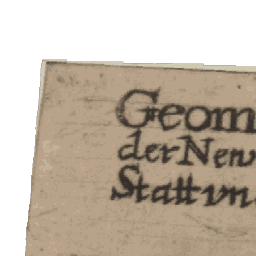 Geom
der New
Statt vn